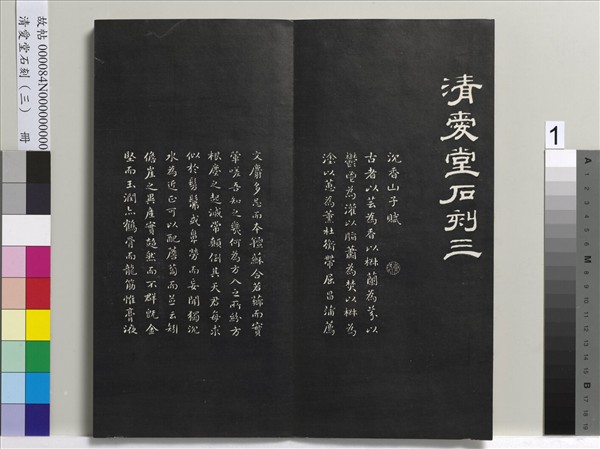 清愛堂石刻三
沉香山子賦
古者以芸為香以椒蘭為芬以
鬱鬯為灌以脂蕭為焚以椒為
塗以蕙為薰杜衡帶屈昌蒲薦
文麝多忌而本羶蘇合若薌而實
葷嗟吾知之幾何為六入之所分方
根塵之起滅常顛倒其天君每求
似於髣髴或鼻勞而妄聞獨沉
水為近正可以配薝蔔而並云矧
儋崖之異產實超然而不群既金
堅而玉潤亦鶴骨而龍筋惟膏液
故帖 000084N000000000
清愛堂石刻（三） 冊
1
A
1
2
3
4
5
6
M
8
9
10
11
12
13
14
15
B
17
18
19